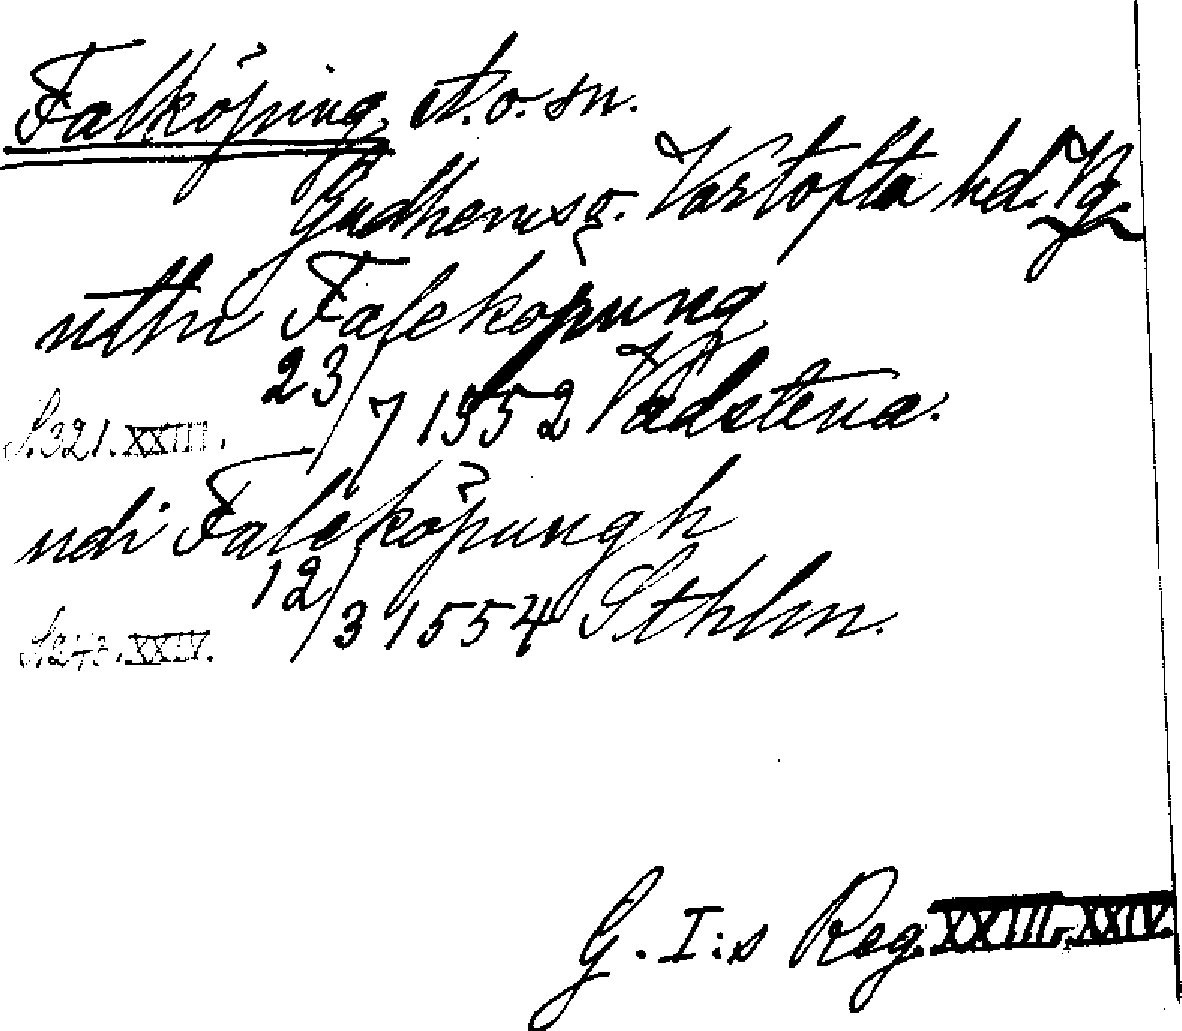 Falköping, st. o. sn.
Gudhems o. Vartofta hd. Vg.
utthi Falekopung
23/7 1552 Vadstena.
S. 321. XXIII.
udi Faleköpungh
12/3 1554 Sthlm.
XXIV.
G. I:s Reg. XXIII, XXIV.